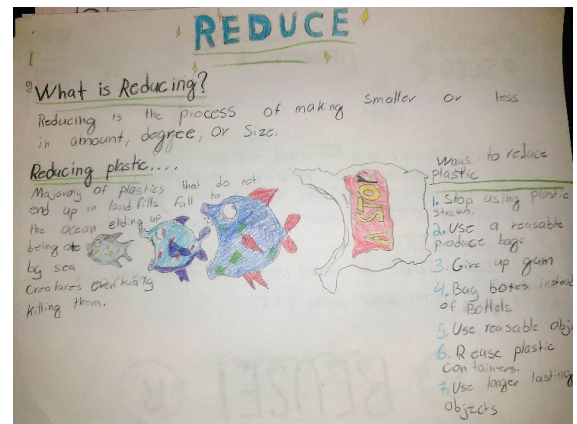 REDUCE
What is Reducing?
Reducing is the process of making smaller or less
in amount, degree, or size.
Reducing plastic....
Majoraty of plastics that do not
end up in land fills fall to
the ocean ending up
being ate
by sea
creatures eventualy
killing them.
Ways to reduce
plastic
1. Stop using plastic
straws.
2. Use a reusable
produce bags
3. Give up gum
4. Buy boxes instead
of Bottels
5. Use reasable obj
6. Reuse plastic
containers.
7. Use larger lasting
objects
REUSE!